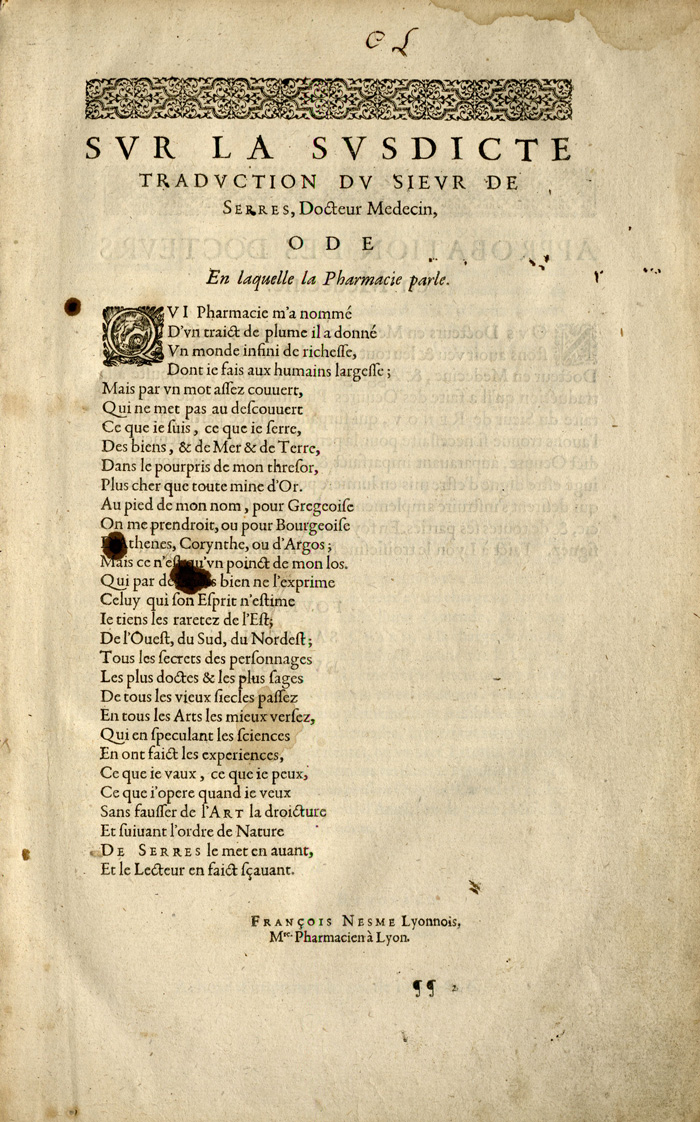 SVR LA SVSDICTE
TRADVCTION DV SIEVR DE
SERRES, Docteur Medecin,
ODE
En laquelle la Pharmacie parle.
QVI Pharmacie m'a nommé
D'vn traict de plume il a donné
Vn monde infini de richeſſe,
Dont ie fais aux humains largeſſe ;
Mais par vn mot aſſez couuert,
Qui ne met pas au deſcouuert
Ce que ie ſuis, ce que ie ſerre,
Des biens, & de Mer & de Terre,
Dans le pourpris de mon threſor,
Plus cher que toute mine d'Or.
Au pied de mon nom, pour Gregeoiſe
On me prendroit, ou pour Bourgeoiſe
Corynthe, ou d'Argos ;
Mais ce n'eſt qu'vn poinct de mon los.
Qui par bien ne l'exprime
Celuy qui ſon Eſprit n'eſtime
Ie tiens les raretez de l'Eſt;
De l'Oueſt, du Sud, du Nordeſt ;
Tous les ſecrets des perſonnages
Les plus doctes & les plus ſages
De tous les vieux ſiecles paſſez
En tous les Arts les mieux verſez,
Qui en ſpeculant les ſciences
En ont faict les experiences,
Ce que ie vaux, ce que ie peux,
Ce que i'opere quand ie veux
Sans fauſſer de l'ART la droicture
Et ſuiuant l'ordre de Nature
DE SERRES le met en auant,
Et le Lecteur en faict ſçauant.
FRANÇOIS NESME Lyonnois,
Mre. Pharmacien à Lyon.
¶¶